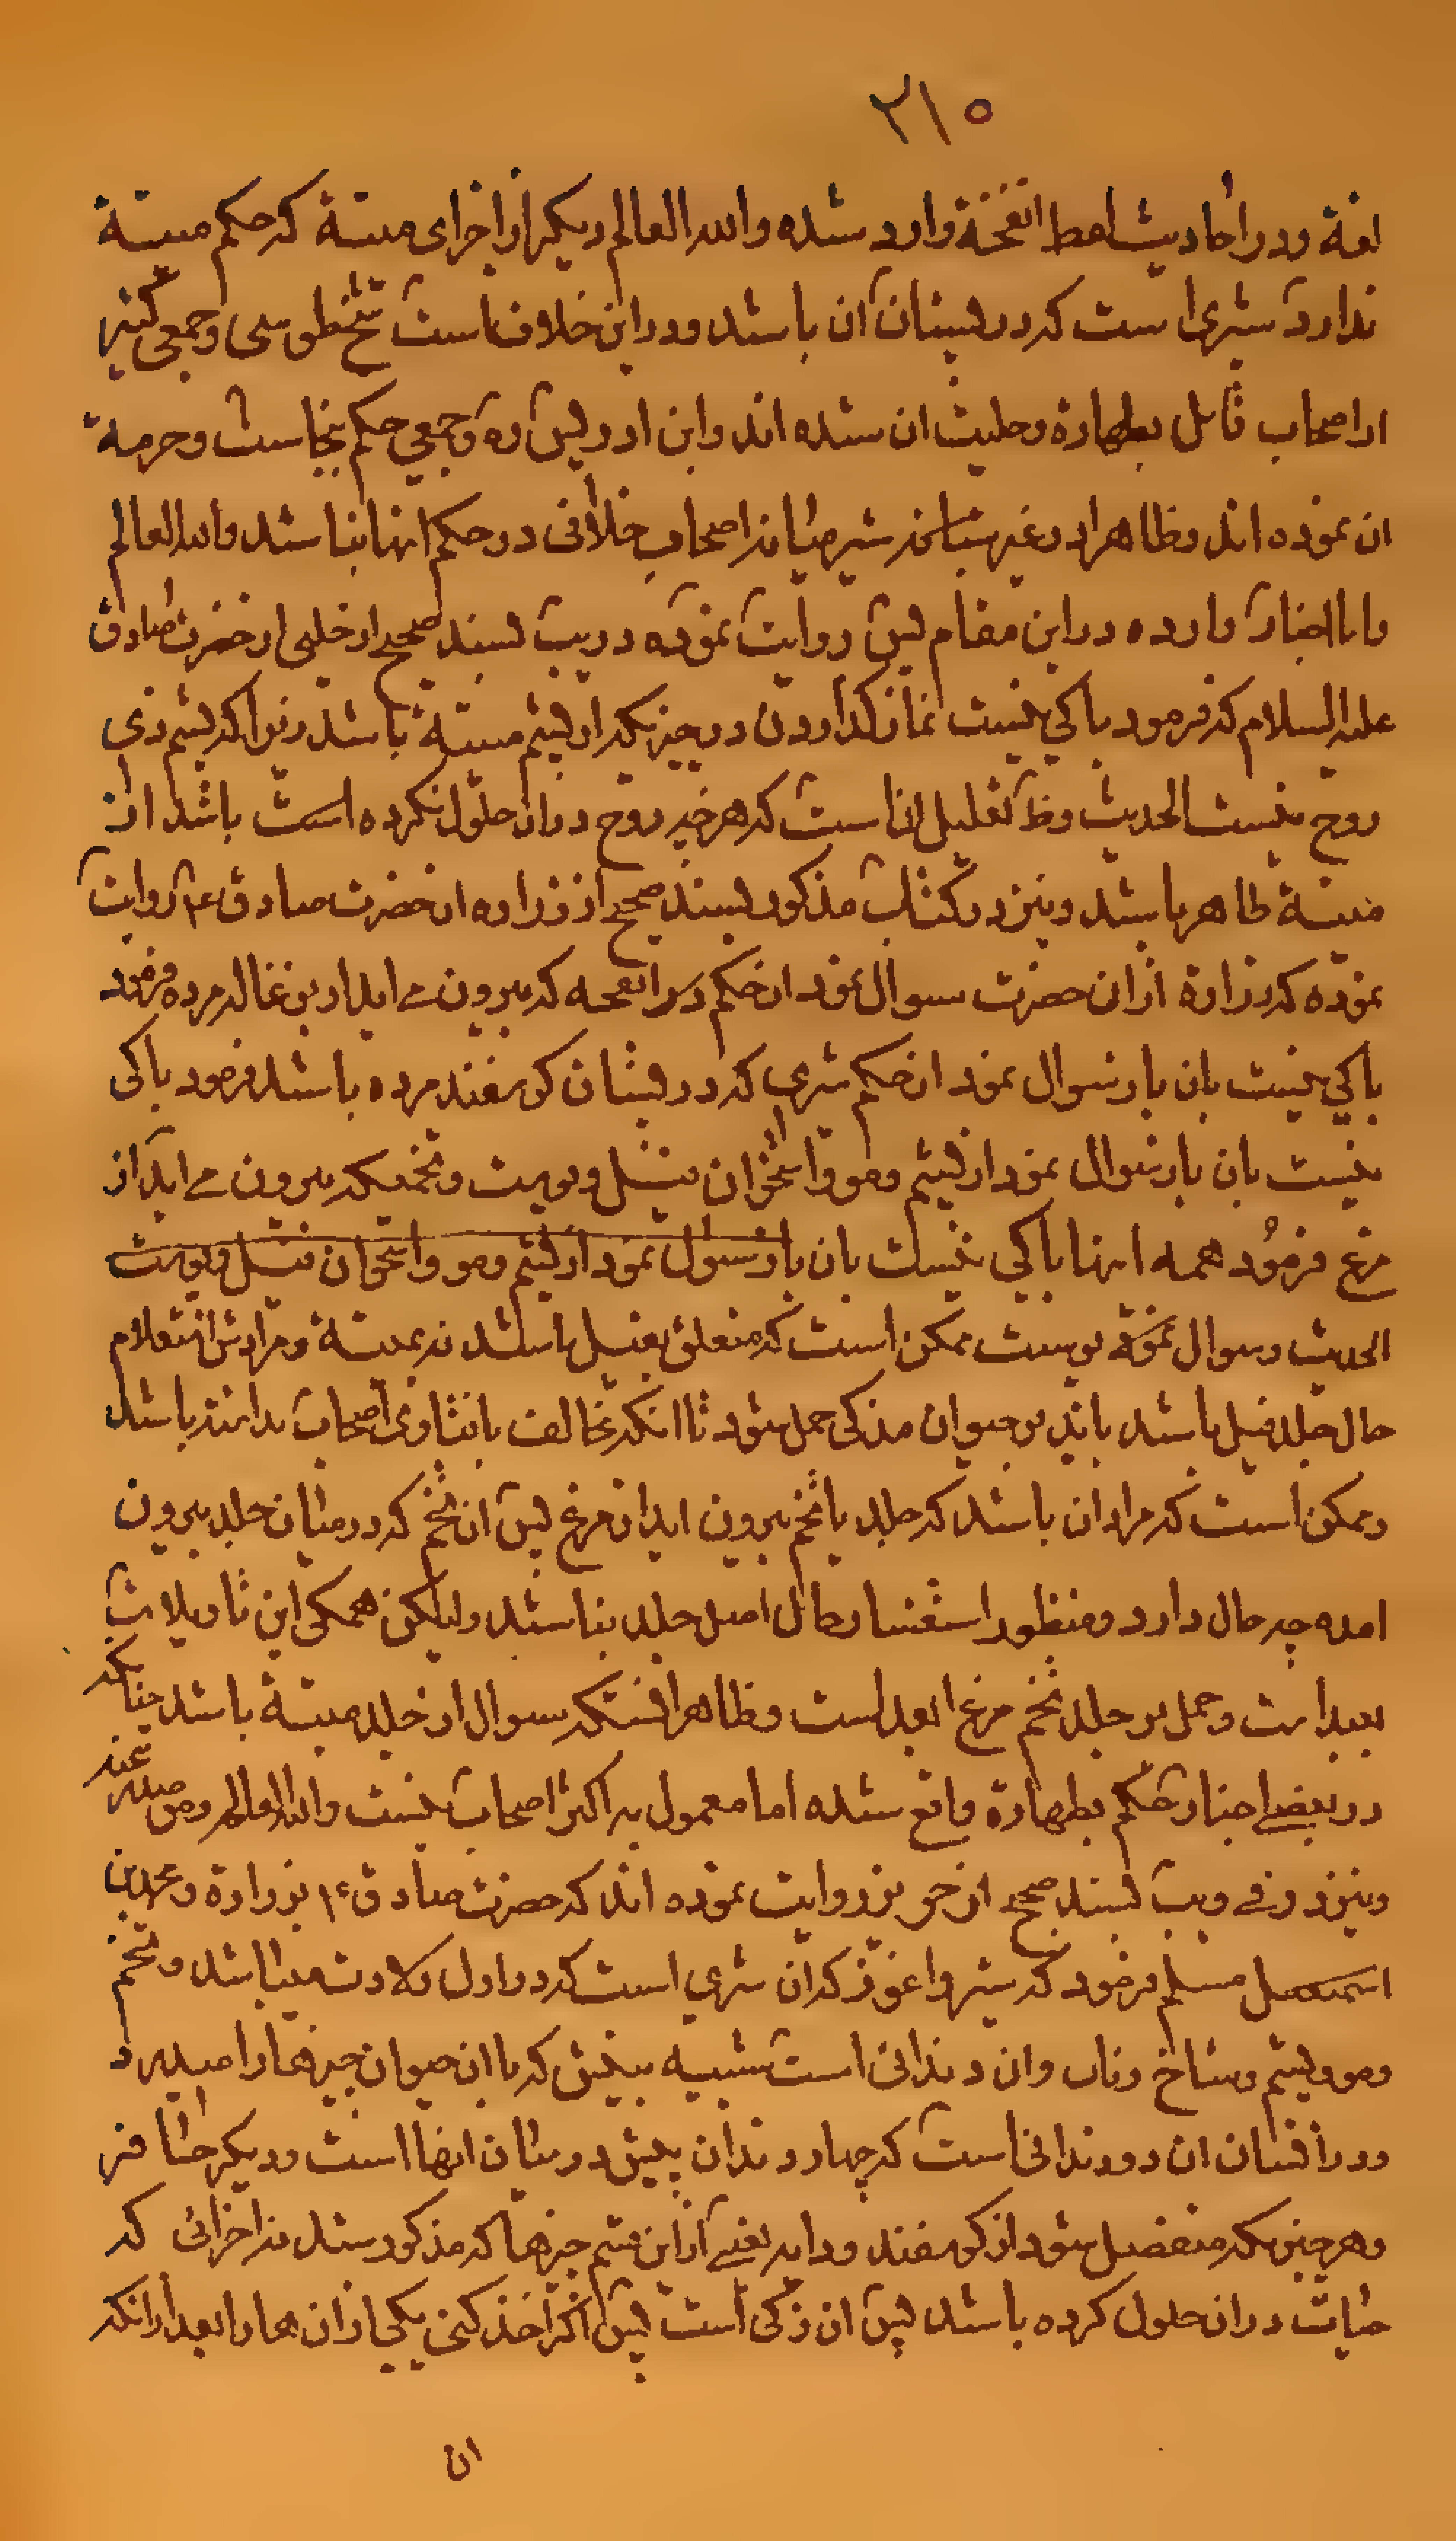 ٣١٥
لغة ودر احادیث لفظ انفخة وارد شده والله العالم دیکر از اجزای میتة که حکم میتة
ندارد شیری است که در پستان ان باشد ودر این خلاف است شیخ طوسی وجمعی کثیر
از اصحاب قائل بطهارة وحلیت ان شده اند وابن ادریس ره وجمعی حکم بنجاست وحرمة
ان نموده اند وظاهرا در غیر شیر میانه اصحاب خلافی در حکم انها نباشد والله العالم
واما اخبار وارده در این مقام پس روایت نموده در یب بسند صحیح از حلبی از حضرت صادق
علیه السلام که فرمود باکی نیست نماز کذاردن در چیزیکه از پشم میتة باشد زیرا که پشم ذی
روح نیست الحدیث وظ تعلیل انست که هر چه روح در ان حلول نکرده است باشد از
میتة طاهر باشد ونیز در کتاب مذکور بسند صحیح از زراره از حضرت صادق ع روایت
نموده که زرارة از ان حضرت سوال نمود از حکم در انفحه که بیرون مے اید از بزغاله مرده فرمود
باکی نیست بان باز سوال نمود از حکم شیری که در پستان کوسفند مرده باشد فرمود باکی
نیست بان باز سوال نمود از پشم ومو واستخوان فیل وپوست وتخمیکه بیرون مے اید از
مرغ فرمود همه اینها باکی نیست بان باز سوال نمود از پشم ومو واستخوان فیل وپوست
الحدیث وسوال نموده پوست ممکن است که متعلق بفیل باشد نه بمیتة ومرادش استعلام
حال جلد فیل باشد باید بر حیوان مذکی حمل شود تا انکه مخالف با فتاوی اصحاب ندانسته باشد
وممکن است که مراد ان باشد که جلد با تخم بیرون اید از مرغ پس ان تخم که در میان جلد بیرون
امده چه حال دارد ومنظور استفسار حال اصل جلد نباشد ولیکن همکی این تاویلات
بعید است وحمل بر جلد تخم مرغ ابعد است وظاهرا انستکه سوال از جلد میتة باشد چنانکه
در بعضے اخبار حکم بطهارة واقع شده اما معمول به اکثر اصحاب نیست والله العالم
ونیز در فے ویب بسند صحیح از حریز روایت نموده اند که حضرت صادق ع بزرارة ومحمد بن
مسلم فرمود که شیر واغوز که ان شیری است که در اول ولادت میباشد وتخم
ومو وپشم وشاخ وناب وان دندانی است شبیه بنیش که با ان حیوان چیزها را میدرد
ودر انسان ان دو دندانی است که چهار دندان پیش در میان انها است ودیکر حافر
وهر چیزیکه منفصل شود از کوسفند ودابه یعنے از این قسم چیزها که مذکور شد نه اجزائی که
حیات در ان حلول کرده باشد پس ان زکی است پس اکر اخذ کنی یکی از ان ها را بعد از انکه
ان